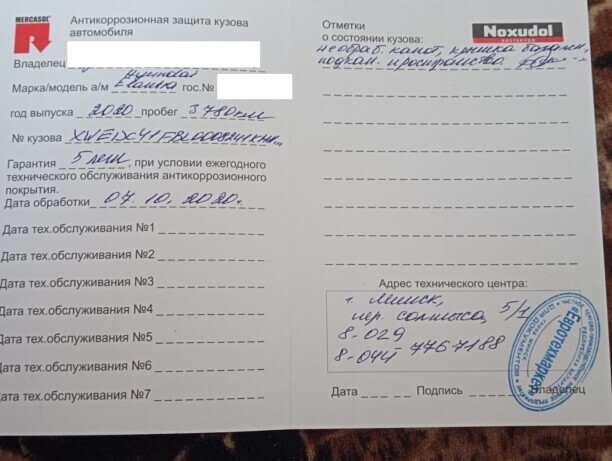 MERCASOL
Антикоррозионная защита кузова
автомобиля
Владелец
Hyundai
Марка/модель а/м Elantra гос.№
год выпуска 2020 пробег 3780 км
№ кузова
Гарантия 5 лет, при условии ежегодного
технического обслуживания антикоррозионного
покрытия.
Дата обработки 07.10.2020г.
Дата тех.обслуживания №1
Дата тех.обслуживания №2
Дата тех.обслуживания №3
Дата тех.обслуживания №4
Дата тех.обслуживания №5
Дата тех.обслуживания №6
Дата тех.обслуживания №7
Отметки
о состоянии кузова:
Noxudol
необраб. капот, крышка багажн,
подкап. пространство.
Адрес технического центра:
г. Минск,
пер. Солтыса, 5/1
8-029
8-044 7767188
Евротехмаркет
ДЛЯ ДОКУМЕНТОВ
Дата Подпись Владелец